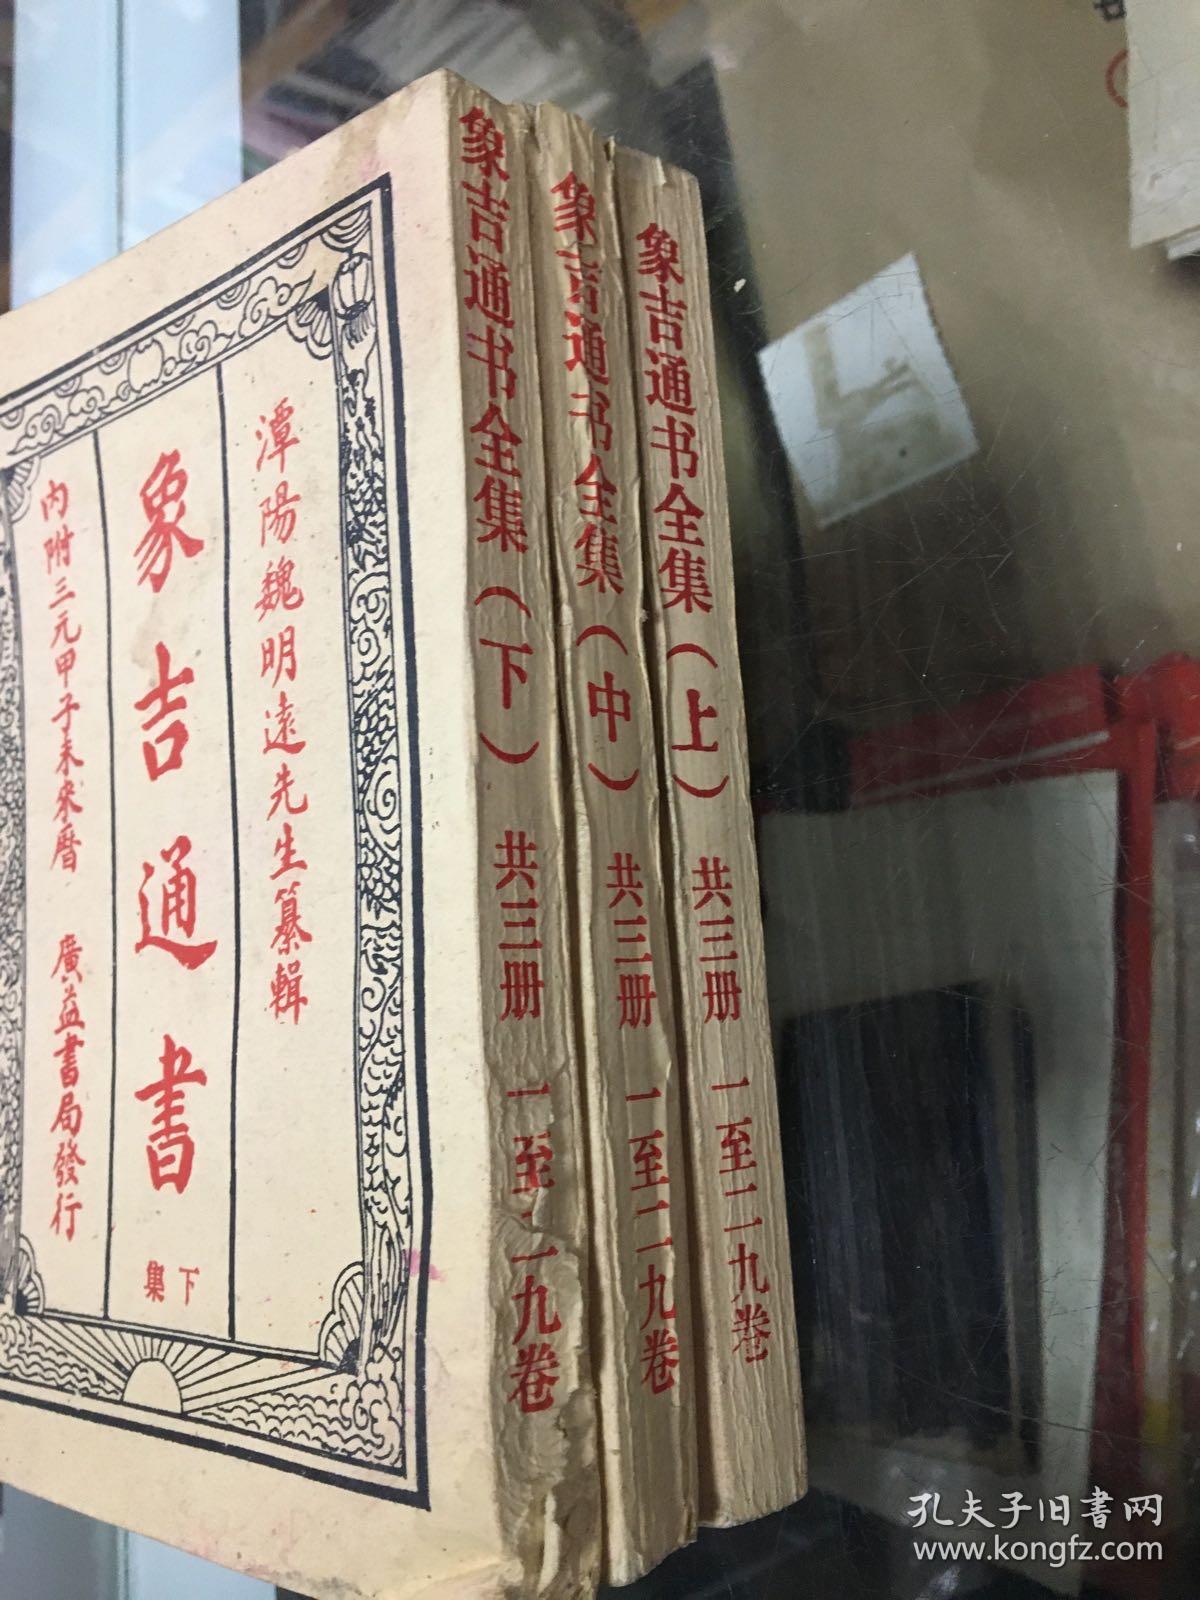 潭陽魏明遠先生纂輯
象吉通書
下集
内附三元甲子未来曆 廣益書局發行
象吉通书全集(下) 共三册 一至二九卷
象吉通书全集(中) 共三册 一至二九卷
象吉通书全集(上) 共三册 一至二九卷
孔夫子旧書网
www.kongfz.com